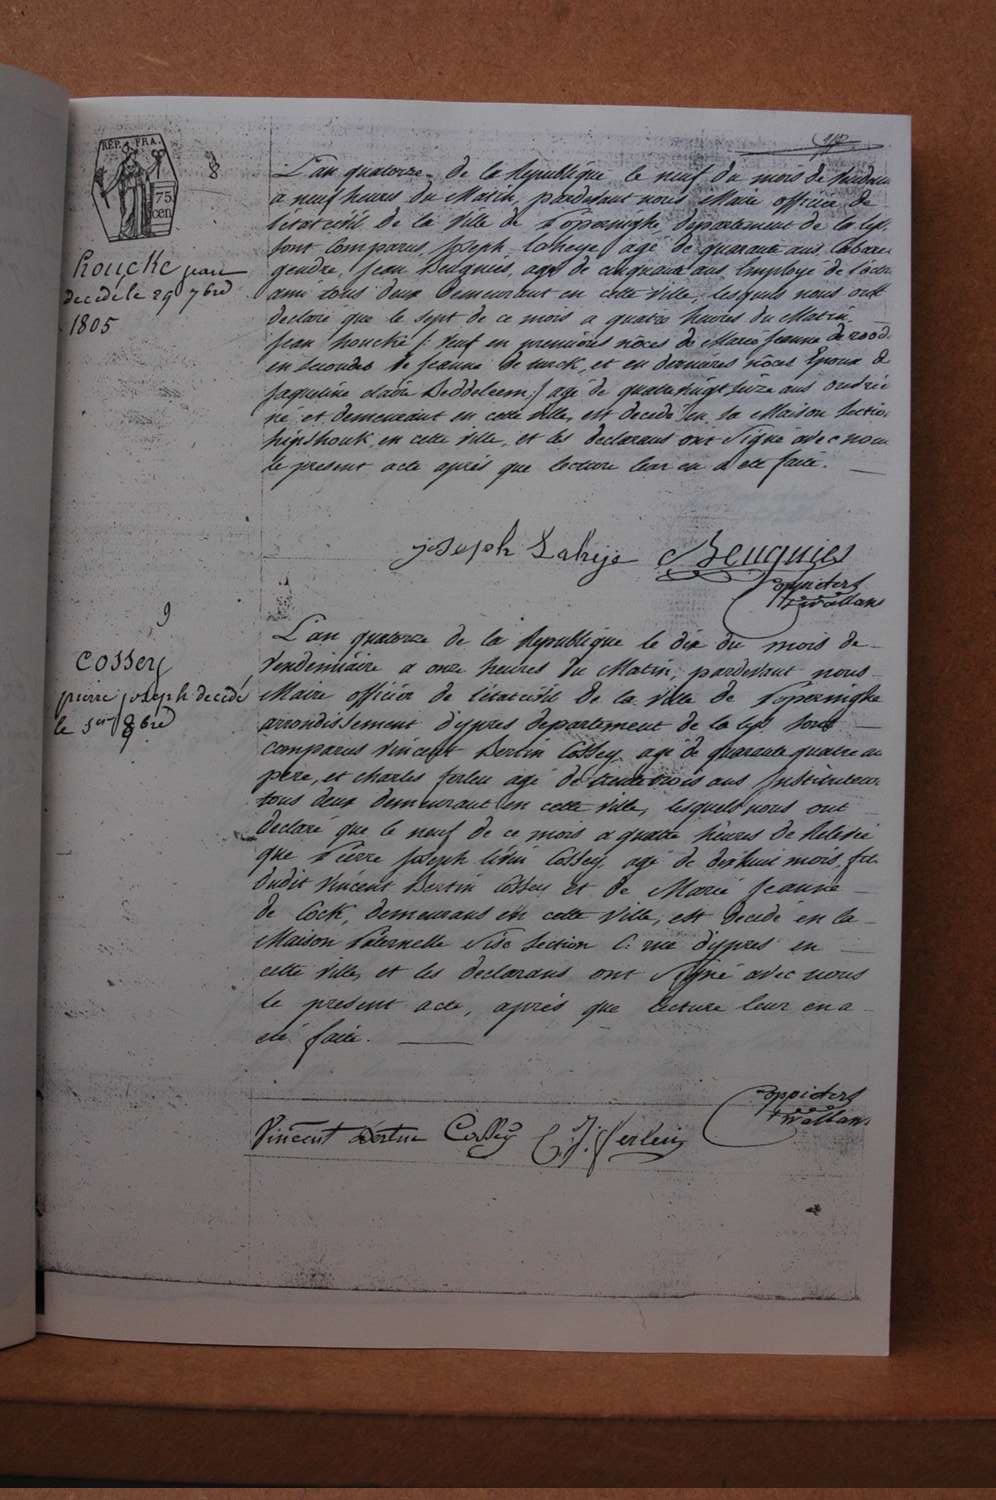 RÉP. FRA.
75
cen
8
houcke jean
decede le 29 7bre
1805
L'an quatorze de la Republique le neuf du mois de
a neuf heures du Matin, pardevant nous Maire officier de
l'etatcivil de la Ville de Poperinghe, departement de la Lys.
sont Comparus Joseph Laheye, agé de quarante ans Cabare-
gendre, Jean Beuquies, agé de cinquante ans Employé de l'octroi
ami tous deux Demeurant en cette Ville, lesquels nous ont
declaré que le sept de ce mois a quatre heures du Matin
Jean houcke (: Veuf en premieres nôces de Marie Jeanne de
en secondes de Jeanne de, et en dernieres nôces Epoux de
Jaqueline Claire agé de quatrevingt seize ans
né et demeurant en cette ville, est decedé en sa Maison Section
en cette ville, et les declarans ont Signé avec nous
le present acte aprés que lecture leur en a eté faite.
joseph Laheije Beuquies
9
Cossey
pierre joseph decedé
le 1er 8bre
L'an quatorze de la Republique le dix du mois de
Vendemiaire a onze heures du Matin, pardevant nous
Maire officier de l'etatcivil de la Ville de Poperinghe
arrondissement d'ypres departement de la Lys. Sont
comparus Vincent Bertin Cossey, agé de quarante quatre an
pere, et Charles ferlein agé de trentetrois ans Instituteur
tous deux demeurant en cette ville, lesquels nous ont
declaré que le neuf de ce mois a quatre heures de Relevée
que Pierre Joseph livin Cossey, agé de dixhuit mois, fils
dudit Vincent Bertin Cossey et de Marie Jeanne
de Cock, demeurans en cette Ville, est decedé en la
Maison Paternelle Sise Section C. rue d'ypres en
cette ville, et les declarans ont Signé avec nous
le present acte, aprés que lecture leur en a
eté faite.
Vincent Bertin Cossey C. J. ferlein